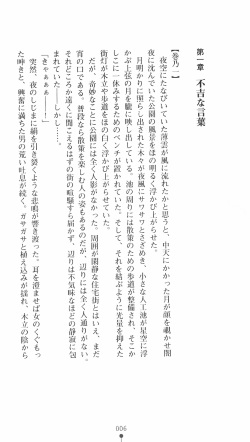 第一章　不吉な言葉
【巻乃一】
　夜空にたなびいていた薄雲が風に流れたかと思うと、中天にかかった月が顔を覗かせ闇
夜に沈んでいた公園の風景をほの明るく浮かび上がらせた。
　月明かりに照らし出された木々が夜風にザワザワとざわめき、小さな人工池が星空に浮
かぶ上弦の月を鏡に映し出している。池の周りには散策のための歩道が整備され、そこか
しこに一休みするためのベンチが置かれていた。そして、それを結ぶように光量を抑えた
街灯が木立や歩道をほの白く浮かび上がらせていた。
　だが、奇妙なことに公園には全く人影がなかった。周囲が閑静な住宅街とはいえ、まだ
宵の口である。普段なら散策を楽しむ人の姿もあるのだが、辺りには全く人通りがない。
それどころか遠くに聞こえるはずの街の喧騒すら届かず、辺りは不気味なほどの静寂に包
まれていた――しかし。
「きゃぁぁぁ――っ！」
　突然、夜のしじまに絹を引き裂くような悲鳴が響き渡った。耳を澄ませば女のくぐもっ
た呻きと、興奮に満ちた男の荒い吐息が続く。ガサガサと植え込みが揺れ、木立の陰から
006